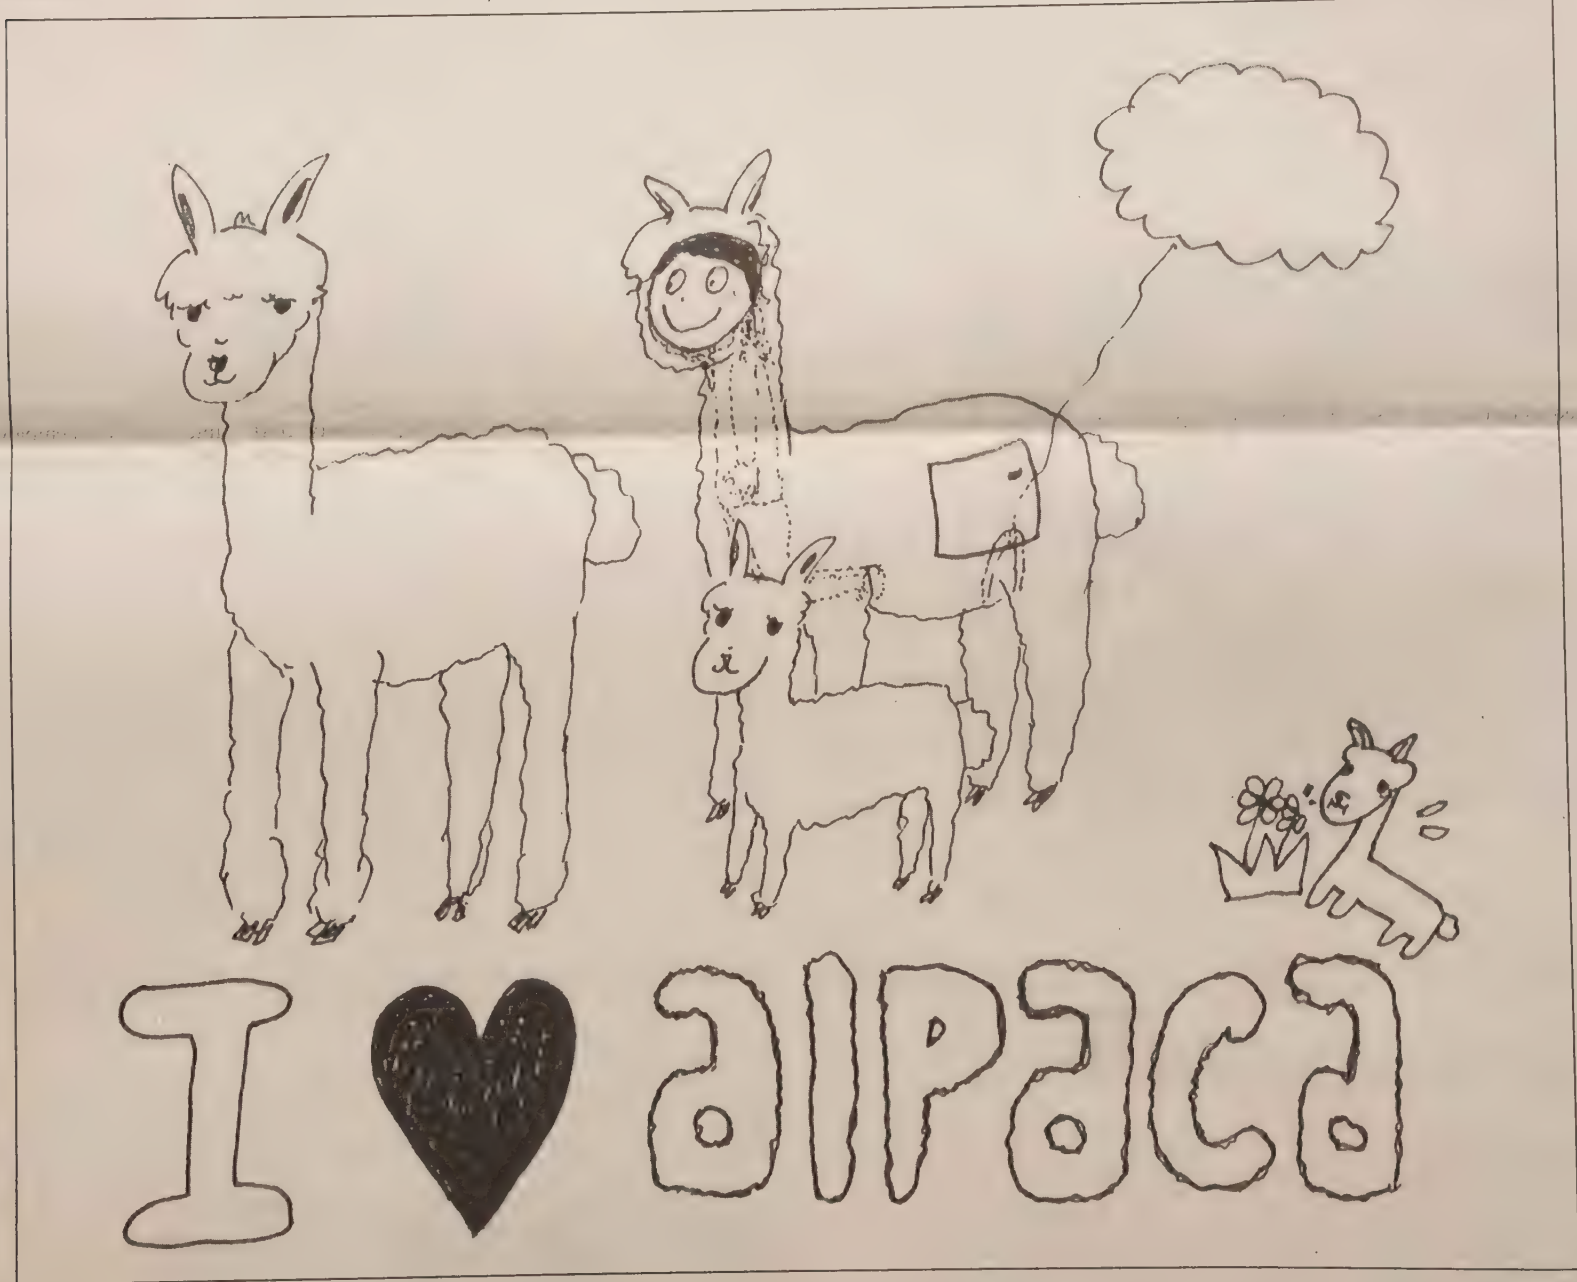 I ♥ alpaca